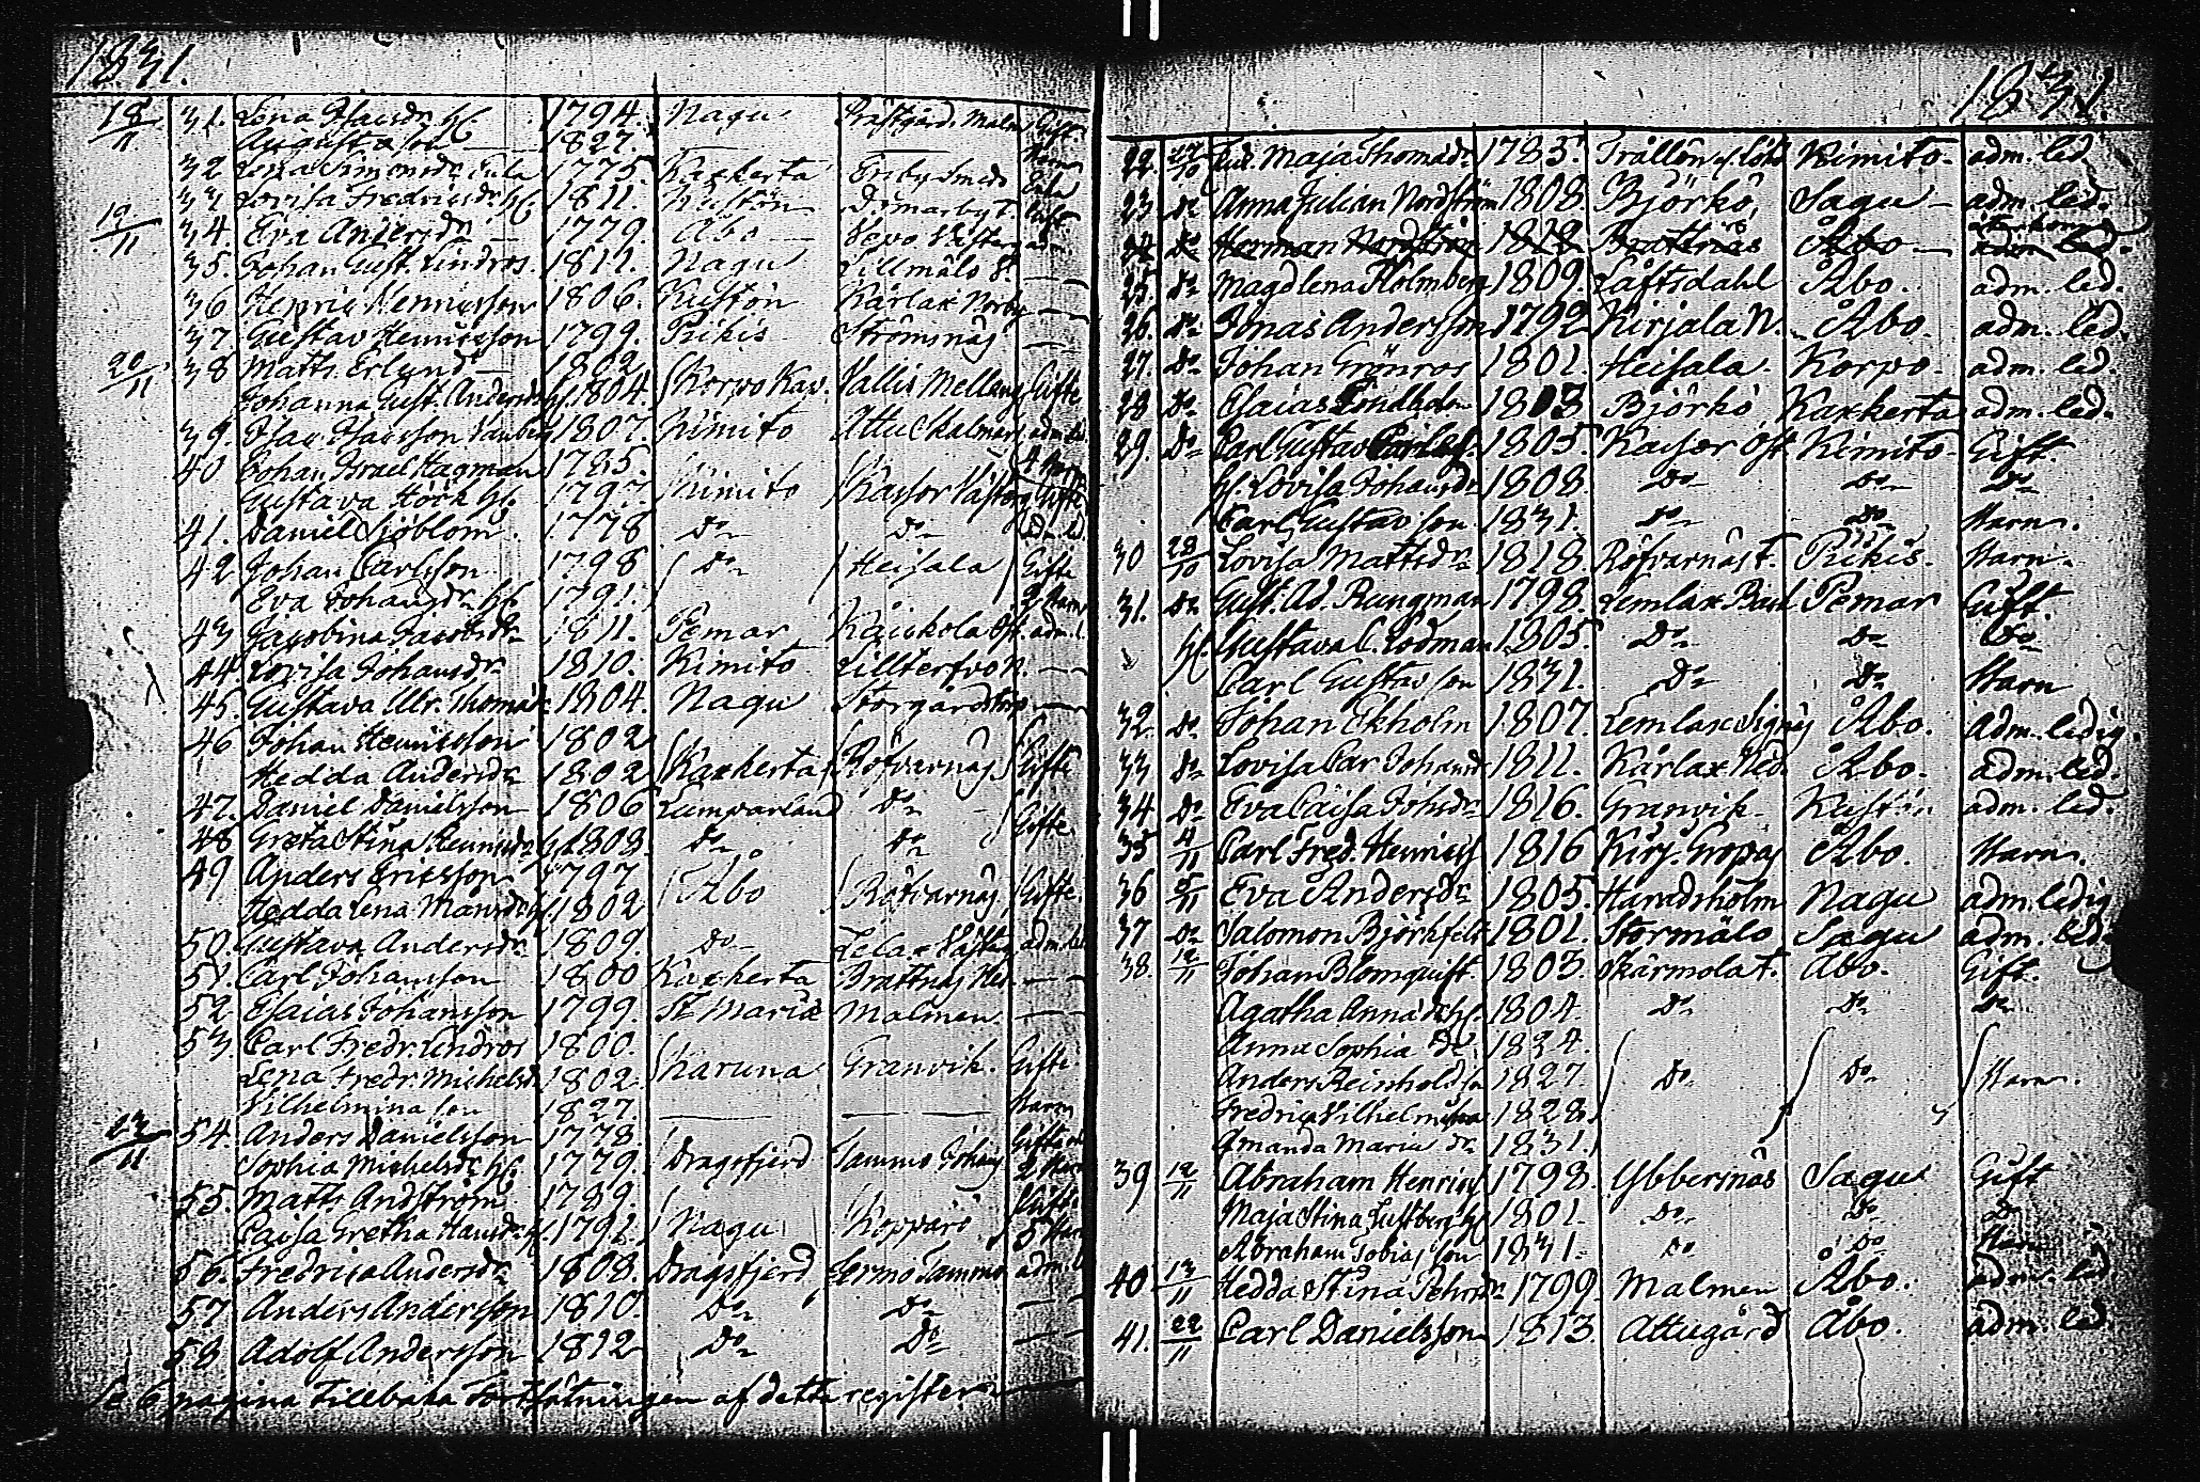 1831.
18/11 31. Lena Isacsdr hf 1794. Nagu Prästgårds Malm Gift.
Augusta 1827. — — Barn
32 Lena Simonsdr Enka 1775. Kaxkerta Eriby Smeds Enka
33 Lovisa Fredricsdr hf. 1811. Kustön Domarby t. Gift.
19/11 34. Eva Andersdr — 1779. Åbo — Vepo adm.
35. Johan Gust. Lindros. 1811. Nagu Lillmälö —
36 Henric Henricsson 1806. Kustön Kärlax Norby —
37 Gustav Henricsson 1799. Pikis Strömsnäs —
20/11 38 Matts Erlund — 1802. Korpo Kap. Vallis Mellang Gifte
Johanna Gust. Andersdr hf. 1804.
39. Isac Isacsson 1807. Kimito Attu Skalmars adm. led.
40 Johan Israel Hagman 1785. Kimito Kasor Västerg Gifte
Gustava Höök hf. 1797.
41. Daniel Sjöblom. 1778 Do Do
42 Johan Carlsson 1798 Do Heisala Gifte
Eva Johansdr hf. 1791. 2 Barn
43 Jacobina Jacobsdr 1811. Pemar Öst. adm. l.
44 Lovisa Johansdr 1810. Kimito Lilltervo N. —
45. Gustava Ulr. Thomasdr 1804. Nagu Storgårds —
46 Johan Henricsson 1802 Kaxkerta Röfvarnäs Gifte
Hedda Andersdr 1802
47. Daniel Danielsson 1806 Lumparland Do Gifte
48 Greta Stina Henricsdr hf. 1808. Do Do
49 Anders Ericsson 1797 Åbo Röfvarnäs Gifte
Hedda Lena Mansdr hf 1802
50. Gustava Andersdr 1809. Do Lelax Västerg adm. led
51. Carl Johansson 1800 Kaxkerta Brattnäs Ned. —
52 Esaias Johansson 1799. St Mariæ Malmen —
53. Carl Fredr. Lindros 1800. Karuna Granvik. Gifte
Lena Fredr. Michelsd. 1802.
Vilhelmina 1827. — — Barn
23/11 54. Anders Danielsson 1778. Dragsfjerd Sammo Johans Gifte
Sophia Michelsdr hf. 1779. 2 Barn
55. Matts Andström 1789. Nagu Kopparö Gifte
Caisa Gretha Hansdr hf. 1792. 5 Barn
56. Fredrica Andersdr 1808. Dragsfjerd Sammo adm. l
57 Anders Andersson 1810. Do Do —
58 Adolf Andersson 1812 Do Do —
Se 6 pagina tillbaka fortsätningen af detta register —
1831.
22. 27/10 Maja Thomasdr 1785. Trällön Kimito. adm. led
23. Do Anna Julian Nordström 1808. Björkö Sagu — adm. led.
24. Do Herman Nordström 1828 Brattnäs Åbo — adm. led.
25. Do Magdlena Holmberg 1809. Låftsdahl Åbo. adm. led.
26. Do Jonas Andersson 1792 Kirjala N. Åbo. adm. led.
27. Do Johan Grönros 1801. Heisala. Korpo. adm. led.
28 Do Esaias Lindholm 1803 Björkö Kaxkerta adm. led.
29. Do Carl Gustav 1805. Kasor Öst. Kimito. Gift.
hf. Lovisa Johansdr 1808. Do Do Do
Carl Gustav son 1831. Do Do Barn.
30 28/10 Lovisa Mattsdr 1818. Röfvarnäs t. Pikis. Barn.
31. Do Gust. Ad. Rungman 1798. Lemlax Pemar Gift.
hf. Gustava C. Lodman 1805. Do Do Do
Carl Gustav son 1831. Do Do Barn
32. Do Johan Ekholm 1807. Lemlax Signäs Åbo. Adm. ledig.
33 Do Lovisa Car Johansd 1811. Kärlax Ned. Åbo. adm. led.
34 Do Eva Caisa Johsdr 1816. Granvik Kustön adm. led.
35 4/11 Carl Fred. Henricss 1816 Kirj. Gropas Åbo. Barn.
36 5/11 Eva Andersdr 1805. Haradsholm Nagu adm. ledig
37 Do Salomon Björkfelt 1801. Stormälö Sagu adm. led.
38. 12/11 Johan Blomquist. 1803. Skärmola t. Åbo. Gift.
Agatha Annasdr hf. 1804. Do Do Do
Anna Sophia dr 1824.
Anders Reinhold son 1827. Do Do Barn.
Fredric Vilhelm son 1828.
Amanda Maria dr 1831.
39 12/11 Abraham Henricss 1798. Ybbersnäs Sagu Gift
Maja Stina Lustberg hf 1801. Do Do Do
Abraham Tobias son 1831. Do Do Barn
40 13/11 Hedda Stina Pehrsdr 1799. Malmen Åbo. adm. led
41. 22/11 Carl Danielsson 1813. Attugård Åbo. adm. led